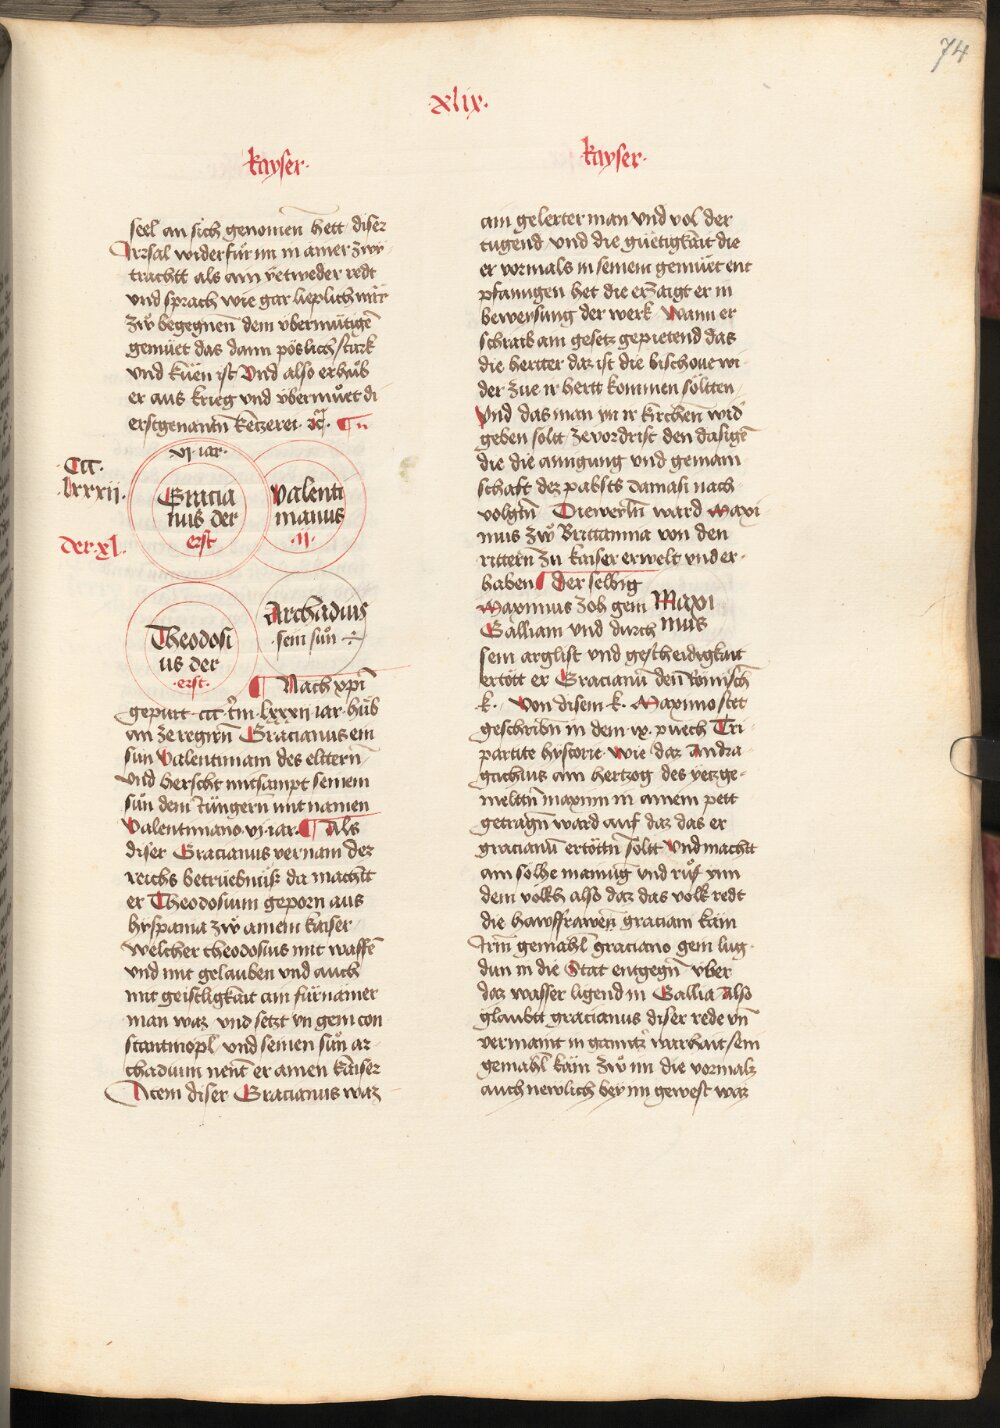 74
·xlix·
kayser·
seel an sich genomen hett diser
Irrsal widerfür im in ainer zwy
trachtt als ain yetweder redt
und sprach wie gar lieplich wär
zw begegnen dem vbermütigē
gemüet das dann pöslich stark
und küen ist Und also erhůb
er aus krieg und vbermůet di
erstgenantn ketzerei ꝛc̄.
·CCC·
lxxxii·
der·xl·
vi·iar·
Gracia
nus der
erst
Valenti
nianus
·ii·
Theodosi
us der
·erst·
Archadius
·sein sůn·
¶ Nach xpī
gepurt ccc lxxxii iar hůb
an ze regirn̄ Gracianus ein
sůn Valentiniani des elttern̄
Und herscht mitsampt seinem
sůn dem Jüngern mit namen
Valentiniano·vi·iar· ¶ Als
diser Gracianus vernam dez
reichs betrüebnüß da machtt
er Theodosium geporn aus
hyspania zẘ ainem kaiser
welcher theodosius mit waffē
und mit gelauben und auch
mit geistligkait ain fürnämer
man waz und setzt yn gem con
stantinopl und seinen sůn ar
chadium nent er ainen kaiser
Item diser Gracianus waz
kayser·
ain gelerter man und vol der
tugend und die güetigkait die
er vormals in seinem gemüet ent
pfanngen het die erzaigt er in
beweysung der werk Wann er
schraib ain gesetz gepietend das
die hertter daz ist die bischove wi
der zue ir hertt kommen soltten
Und das man yn ir kirchen wid̄
geben soltt zevordrist den dasigē
die die ainigung und gemain
schaft dez pabsts Damasi nach
volgtn̄ Dieweiln̄ ward Maxi
mus zẘ Brittannia von den
rittern zu kaiser erwelt und er
haben ¶ Der selbig
Maximus zoh gem
Galliam und durch
Maxi
mus
sein arglist und gescheidigkait
ertött er Gracianū den Römisch̄
k· Von disem k· Maximo stet
geschribn̄ in dem ·ix· půech Tri
partite hystorie wie daz Andra
gathius ain hertzog des yetzge
meltn̄ maximi in ainem pett
getragn̄ ward auf daz das er
gracianū ertöttn̄ soltt Und macht
ain solhe mainūg und růf ynn
dem völkh also daz das volk redt
die hawsfrawen graciani käm
Irm̄ gemahl graciano gem lug
dun in die Stat entgegn̄ vber
daz wasser ligend in Gallia Also
glaubtt gracianus diser rede vn̄
vermaint in gantz warhait sein
gemahl käm zẘ im die vormalz
auch newlich bey im gewest waz